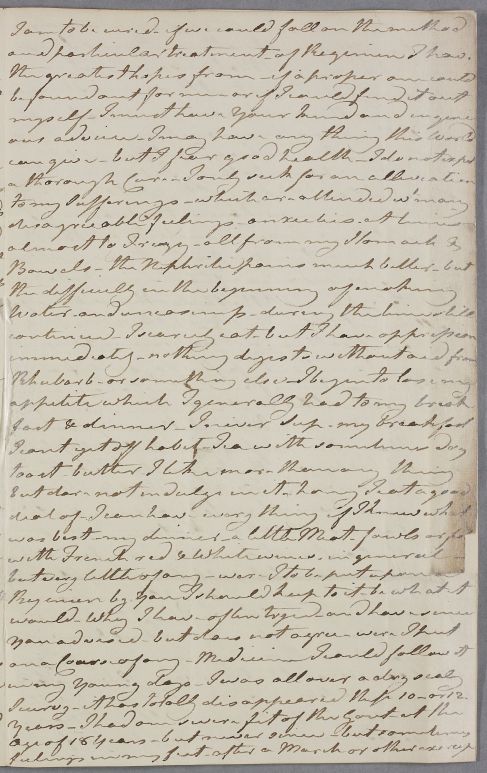 I am to be cured - if we could fall on the method
and particular treatment - of Regimen I have
the greatest hopes from - if a proper one could
be found out for me or if I could find it out
myself - I must have your kind and ingeni
ous advice - I may have any thing this World
can give - but I fear good health - I do not expect
a thorough Cure - I only seek for an alleviation
to my Sufferings - which are attended wt many
disagreeable feelings - at times
almost to Frenzy - all from my Stomach &
Bowels - the Nephritic pains much better - but
the difficulty in the beginning of making
Water - and uneasiness - during the time still
continues I scarcely eat - but I have oppression
immediately - nothing digests without aid from
Rhubarb - or something else - I begin to lose my
appetite which I generally had to my break
fast & dinner - I never Sup - my Breakfast
I cant get off habit - Tea with sometimes dry
toast butter I like more - than any thing
but dar - not indulge in it - honey I eat a good
deal of - I can have every thing if I knew what
was best - my dinner a little Meat - fowls or
with French red & White wines - in general -
but very little of any - was I to be put upon a
Regimen by you I should keep to it - be what it
would - Whey I have often tryed - and have since
you advised - but does not agree - were I put
on a Course of any - Medicine I could follow it
in my Young days - I was all over a dry scaly
Scurvy - it has totally disappeared these 10 - or 12
years - I had one severe fit of the Gout at the
age of 18 years - but never since - but sometimes
feelings in my feet - after a March or other exercise